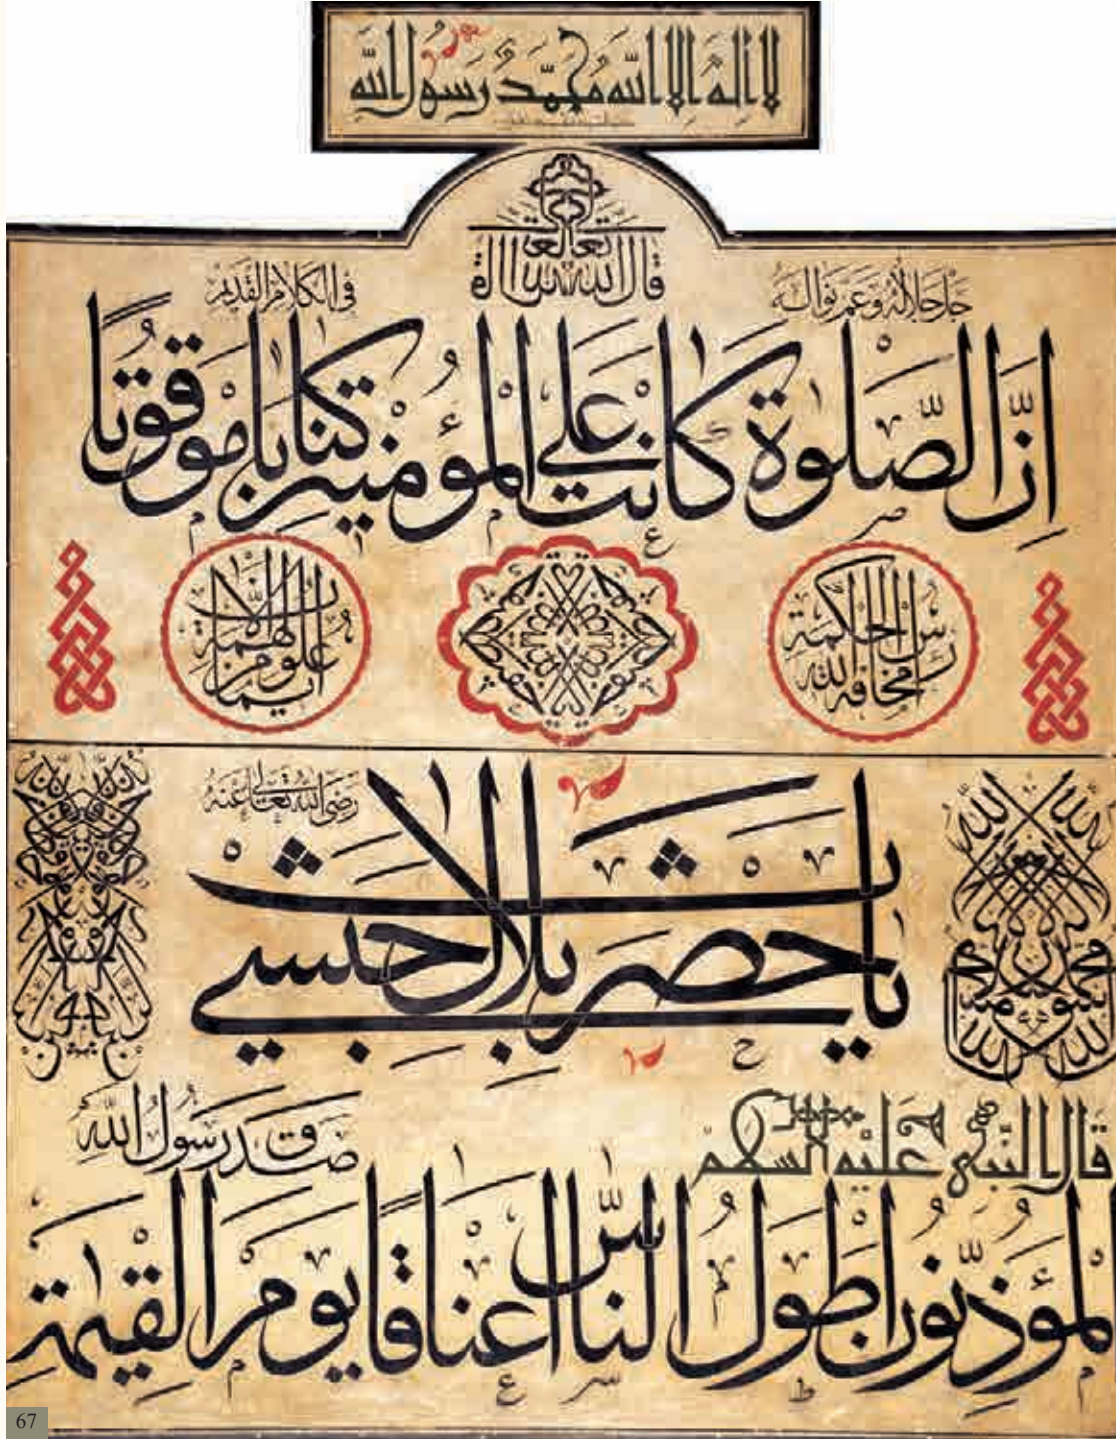 لا اله الا الله محمد رسول الله
قال الله تعالى
جل جلاله وعم نواله
في الكلام القديم
إن الصلوة كانت على المؤمنين كتابا موقوتا
رأس الحكمة مخافة الله
علو الهمة من الايمان
رضي الله تعالى عنه
يا حضرت بلال حبشي
قال النبي عليه السلام
صدق رسول الله
المؤذنون اطول الناس اعناقا يوم القيمة
67